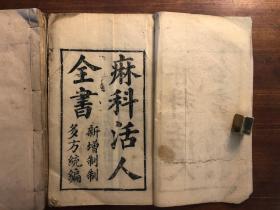 痳科活人
全書
新增制制
多方統編